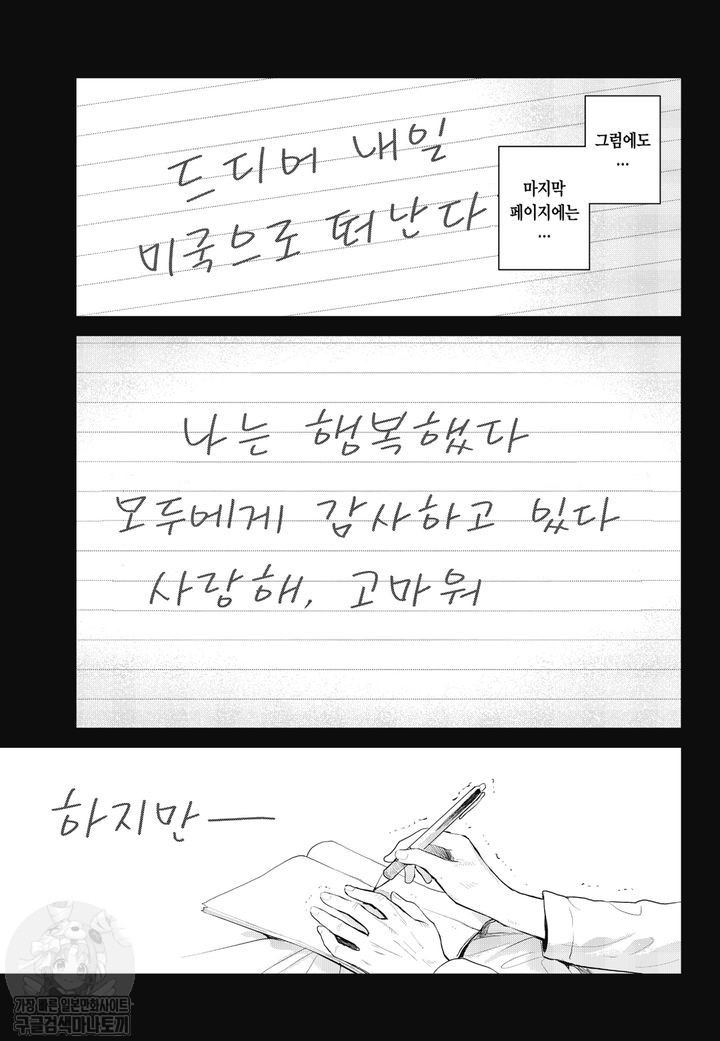 그럼에도
…
마지막
페이지에는
…
드디어 내일
미국으로 떠난다
나는 행복했다
모두에게 감사하고 있다
사랑해, 고마워
하지만—
가장 빠른 일본만화사이트
구글검색마나토끼